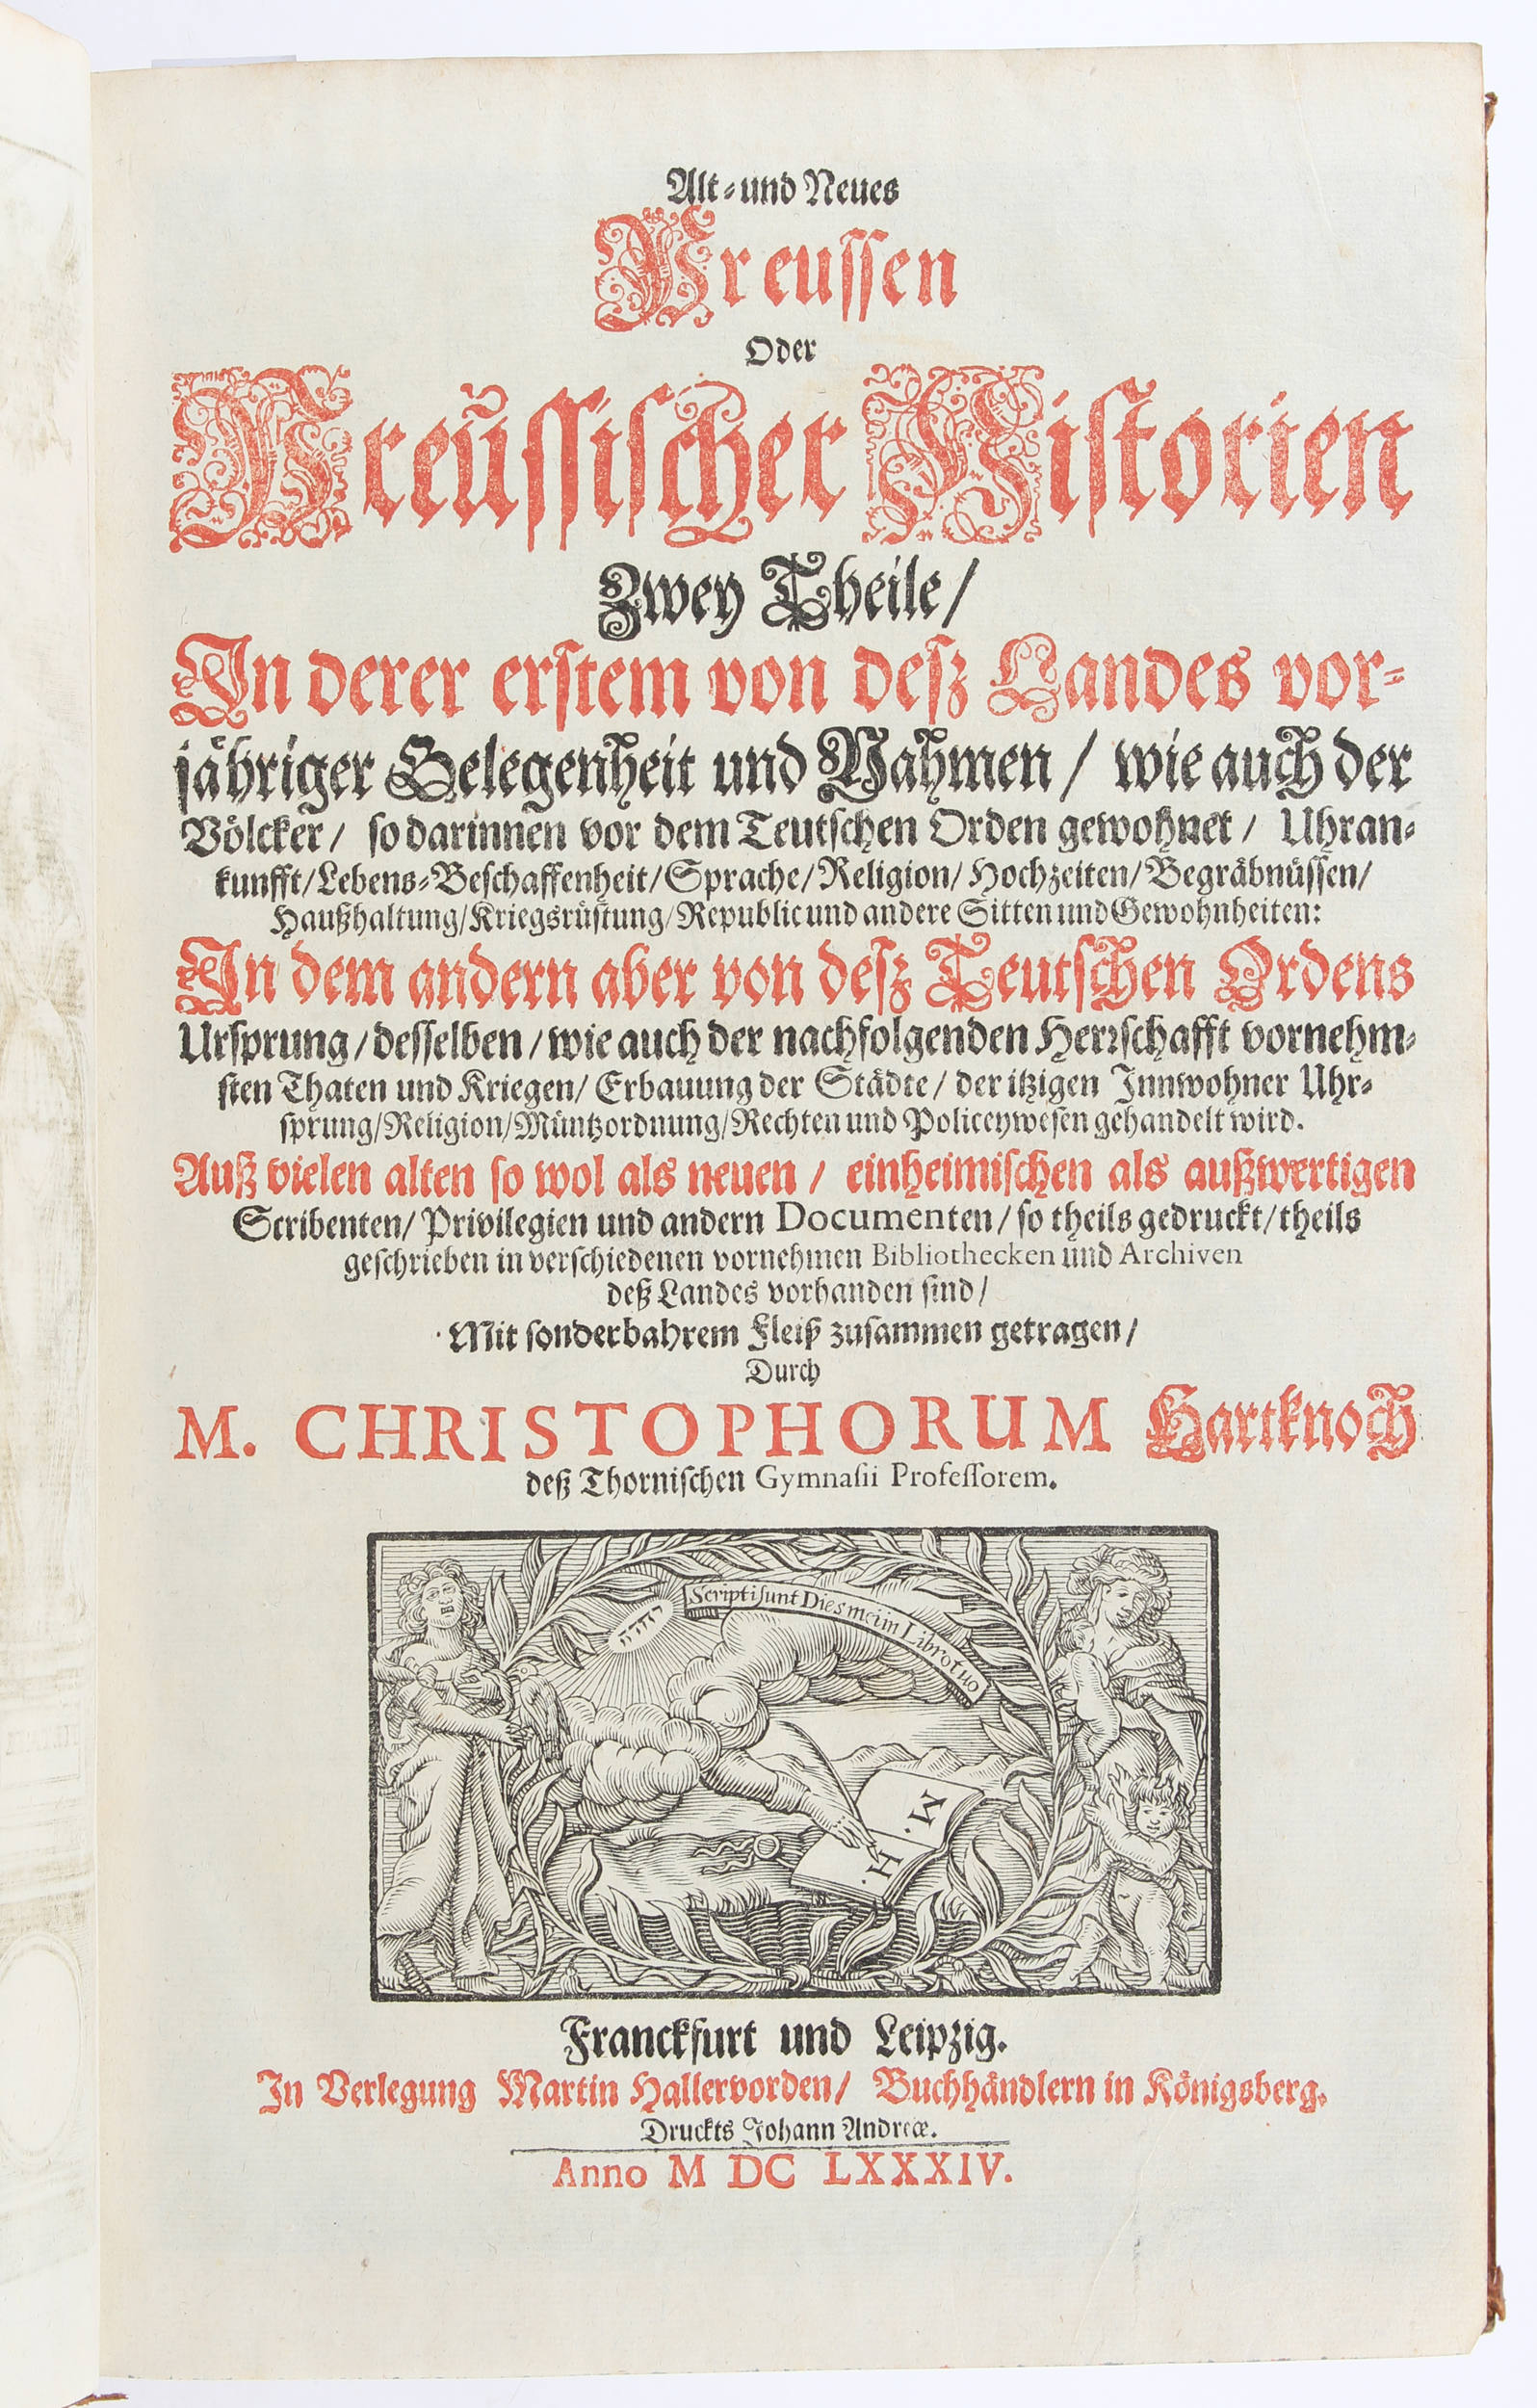 Alt- und Neues
Preussen
Oder
Preussischer Historien
Zwey Theile/
In derer erstem von deß Landes vor-
jähriger Gelegenheit und Nahmen/ wie auch der
Völcker/ so darinnen vor dem Teutschen Orden gewohnet/ Uhran-
kunfft/Lebens-Beschaffenheit/Sprache/Religion/Hochzeiten/Begräbnüssen/
Haußhaltung/Kriegsrüstung/Republic und andere Sitten und Gewohnheiten:
In dem andern aber von deß Teutschen Ordens
Ursprung/desselben/wie auch der nachfolgenden Herrschafft vornehm-
sten Thaten und Kriegen/ Erbauung der Städte/ der itzigen Innwohner Uhr-
sprung/Religion/Müntzordnung/Rechten und Policeywesen gehandelt wird.
Auß vielen alten so wol als neuen/ einheimischen als außwertigen
Scribenten/Privilegien und andern Documenten/ so theils gedruckt/theils
geschrieben in verschiedenen vornehmen Bibliothecken und Archiven
deß Landes vorhanden sind/
Mit sonderbahrem Fleiß zusammen getragen/
Durch
M. CHRISTOPHORUM Hartknoch
deß Thornischen Gymnasii Professorem.
Scripti sunt Dies mei in Libro tuo
יהוה
M.
H.
Franckfurt und Leipzig.
In Verlegung Martin Hallervorden/ Buchhändlern in Königsberg.
Druckts Johann Andreæ.
Anno M DC LXXXIV.